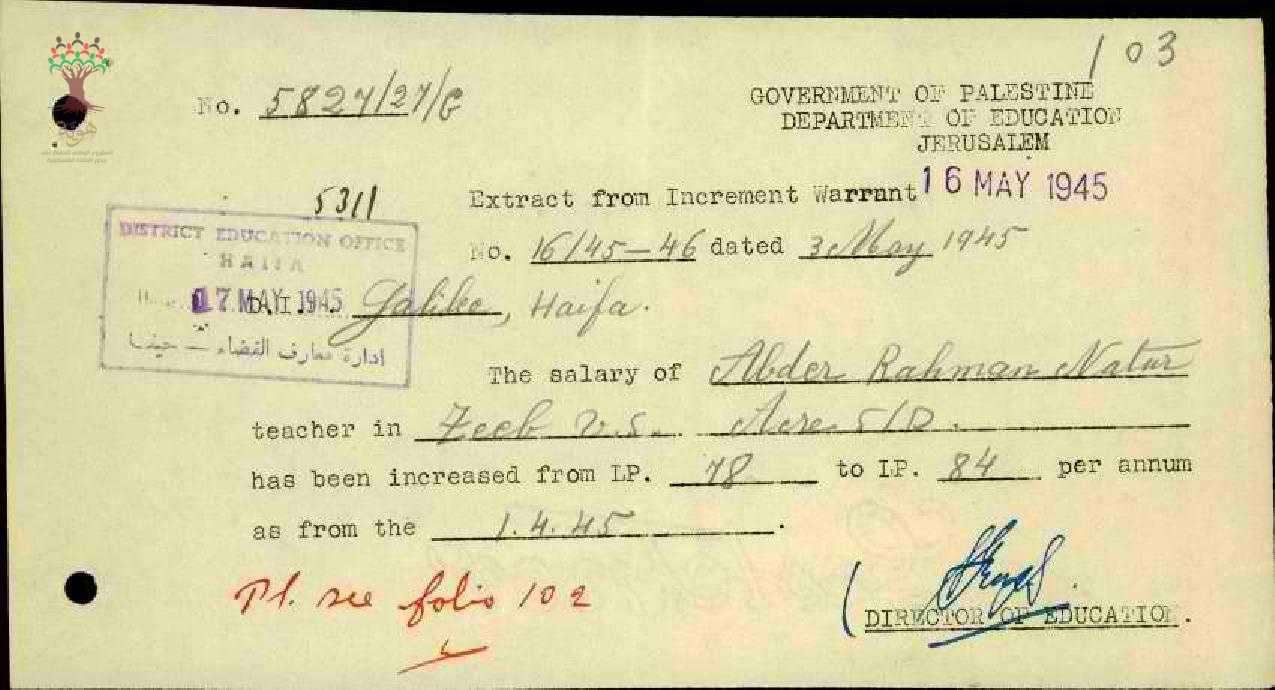 103
No. 5827/27/G
GOVERNMENT OF PALESTINE
DEPARTMENT OF EDUCATION
JERUSALEM
16 MAY 1945
5311
Extract from Increment Warrant
No. 16/45-46 dated 3 May 1945
DISTRICT EDUCATION OFFICE
HAIFA
17 MAY 1945
D.I. Galilee, Haifa.
ادارة معارف القضاء - حيفا
The salary of Abder Rahman Natur
teacher in Zeeb v.s. Acre S/D.
has been increased from LP. 78 to LP. 84 per annum
as from the 1.4.45.
Pl. see folio 102
DIRECTOR OF EDUCATION.